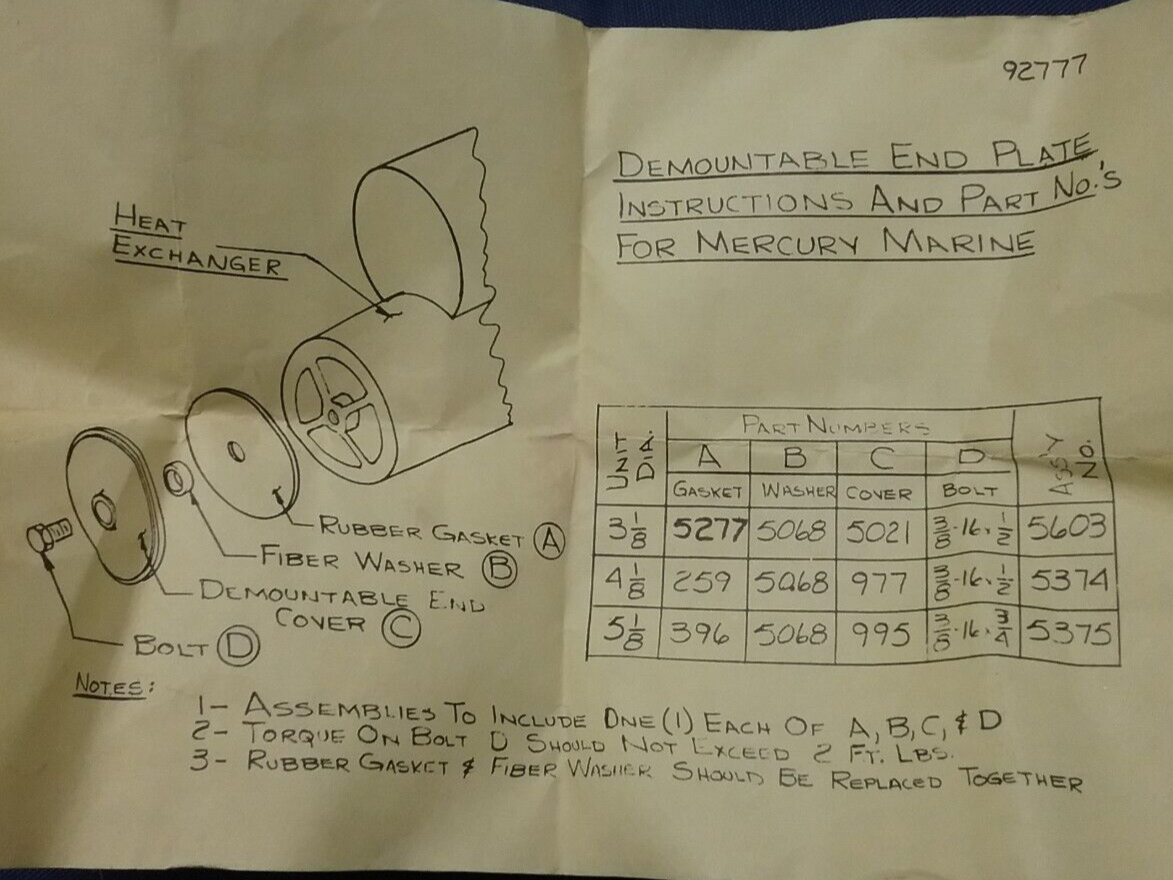 92777
DEMOUNTABLE END PLATE
INSTRUCTIONS AND PART NO.'S
FOR MERCURY MARINE
HEAT
EXCHANGER
RUBBER GASKET A
FIBER WASHER B
DEMOUNTABLE END
COVER C
BOLT D
UNIT DIA. PART NUMBERS ASS'Y NO.
A B C D
GASKET WASHER COVER BOLT
3 1/8 5277 5068 5021 3/8-16x1/2 5603
4 1/8 259 5068 977 3/8-16x1/2 5374
5 1/8 396 5068 995 3/8-16x3/4 5375
NOTES:
1- ASSEMBLIES TO INCLUDE ONE (1) EACH OF A, B, C, & D
2- TORQUE ON BOLT D SHOULD NOT EXCEED 2 FT. LBS.
3- RUBBER GASKET & FIBER WASHER SHOULD BE REPLACED TOGETHER